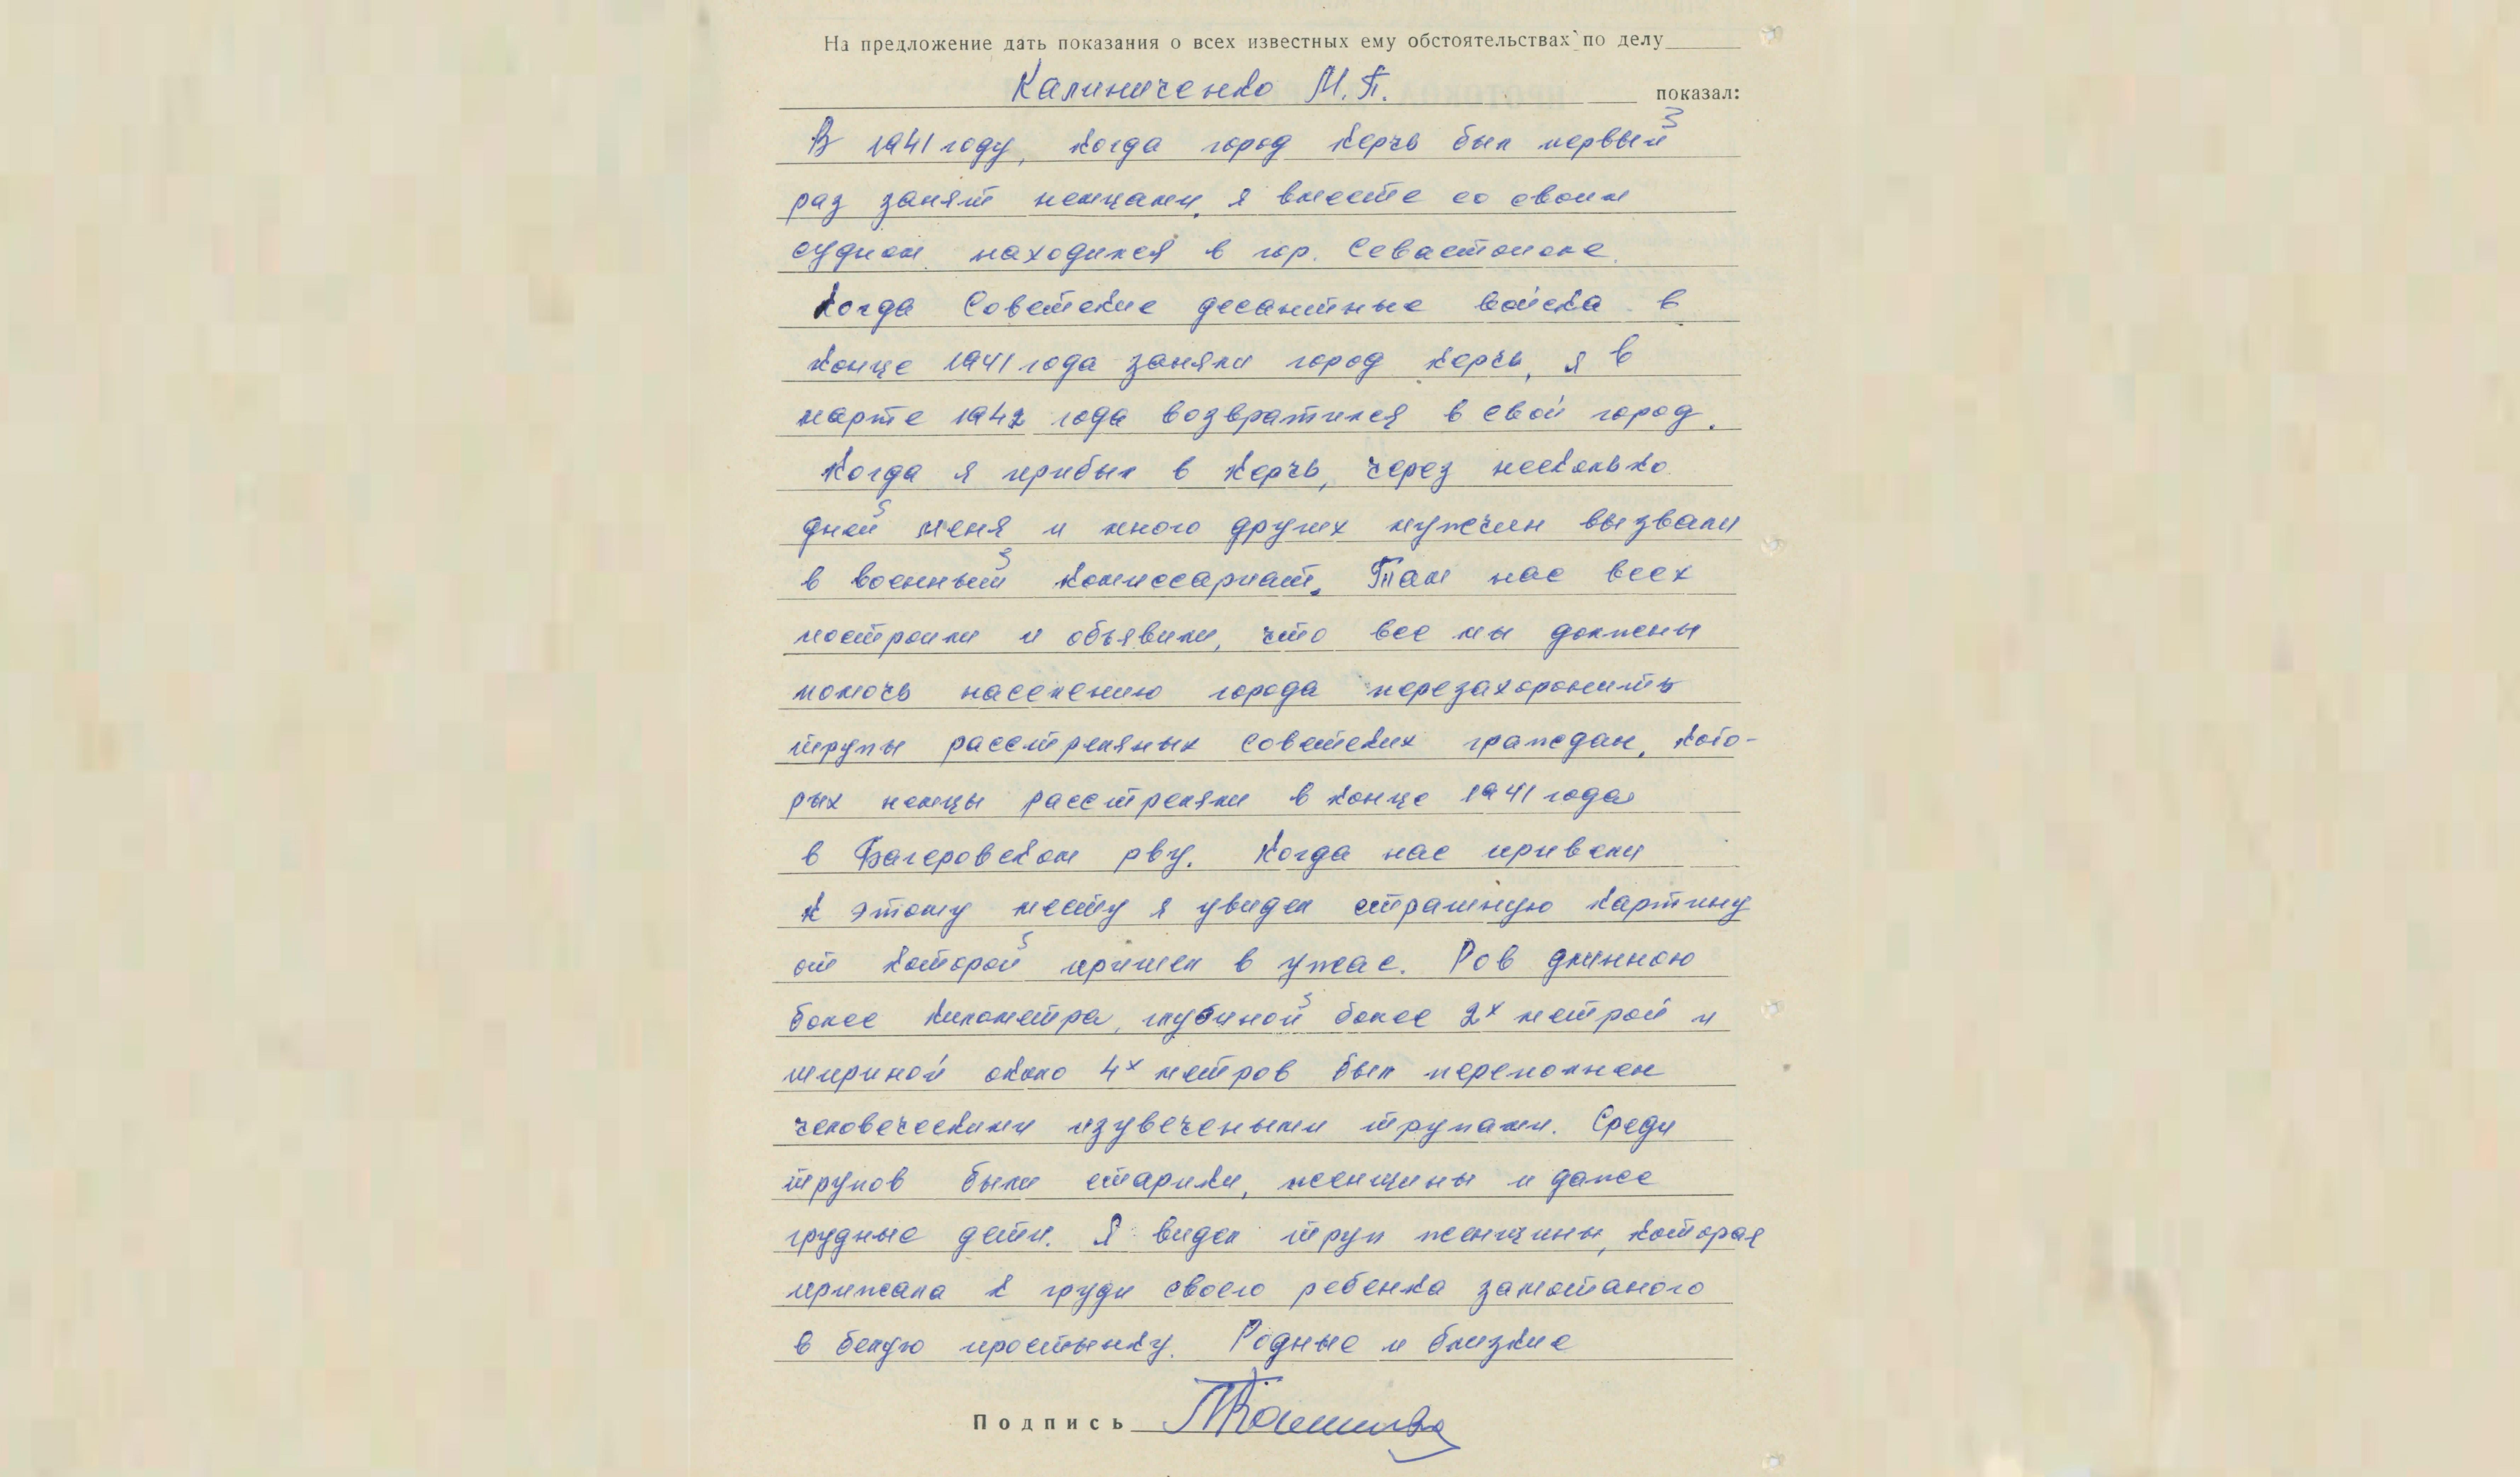 На предложение дать показания о всех известных ему обстоятельствах по делу
Калиниченко М. П. показал:
В 1941 году, когда город Керчь был первый
раз занят немцами, я вместе со своим
судном находился в гор. Севастополе.
Когда Советские десантные войска в
конце 1941 года заняли город Керчь, я в
марте 1942 года возвратился в свой город.
Когда я прибыл в Керчь, через несколько
дней меня и много других мужчин вызвали
в военный комиссариат. Там нас всех
построили и объявили, что все мы должены
помочь населению города перезахоронить
трупы расстреляных советских граждан, кото-
рых немцы расстреляли в конце 1941 года
в Багеровском рву. Когда нас привели
к этому месту я увидел страшную картину
от которой пришел в ужас. Ров длинною
более километра, глубиной более 2х метрой и
шириной около 4х метров был переполнен
человеческими изувечеными трупами. Среди
трупов были старики, женщины и даже
грудные дети. Я видел труп женщины, которая
прижала к груди своего ребенка замотаного
в белую простынку. Родные и близкие
Подпись